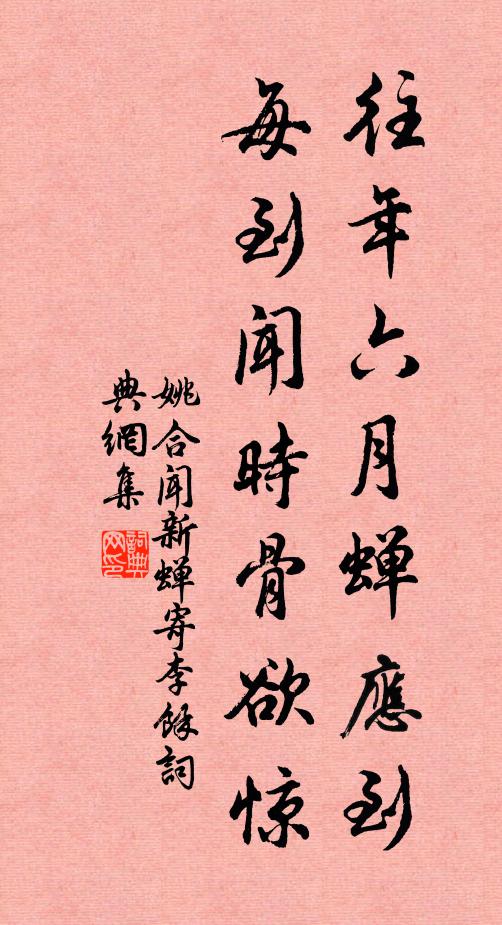 往年六月蝉應到
每到闻時骨欲惊
姚合闻新蝉寄李餘詞
典網集
詞典网印